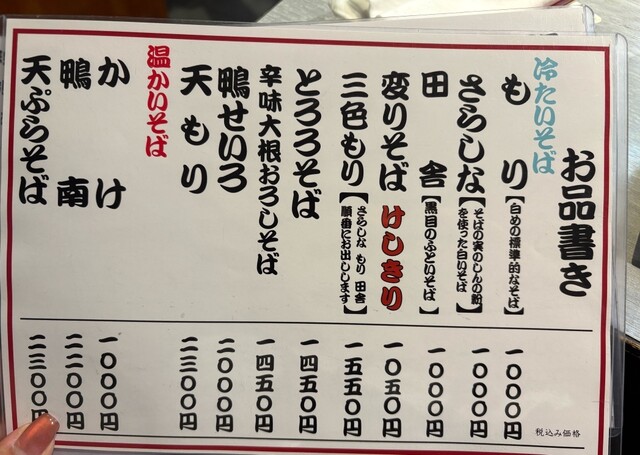 お品書き
冷たいそば
もり【白めの標準的なそば】 一〇〇〇円
さらしな【そばの実のしんの粉を使った白いそば】 一〇〇〇円
田舎【黒目のふといそば】 一〇〇〇円
変りそば けしきり 一〇五〇円
三色もり【さらしな もり 田舎 順番にお出しします】 一五五〇円
とろろそば 一四五〇円
辛味大根おろしそば 一四五〇円
鴨せいろ 二〇〇〇円
天もり 二三〇〇円
温かいそば
かけ 一〇〇〇円
鴨南 二二〇〇円
天ぷらそば 二三〇〇円
税込み価格